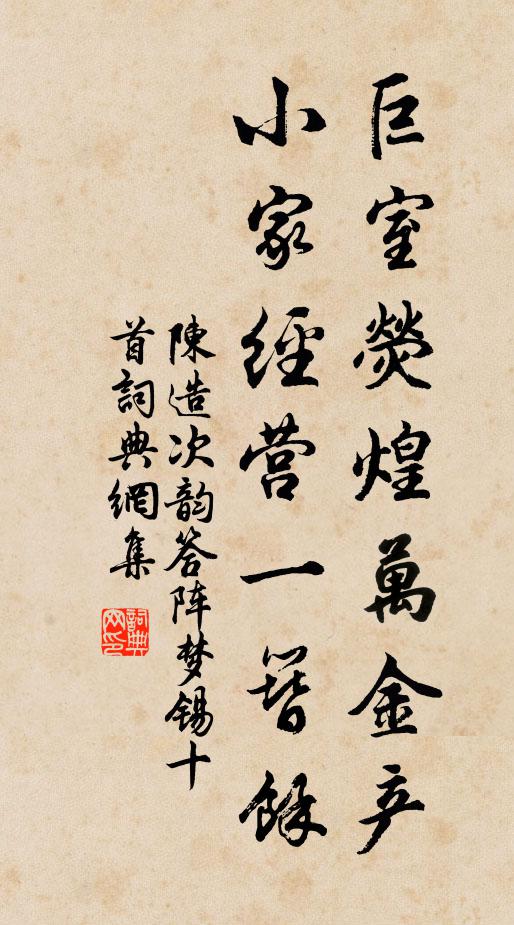 巨室熒煌萬金产
小家經营一簪餘
陳造次韵答阵梦锡十
首詞典網集
詞典网印